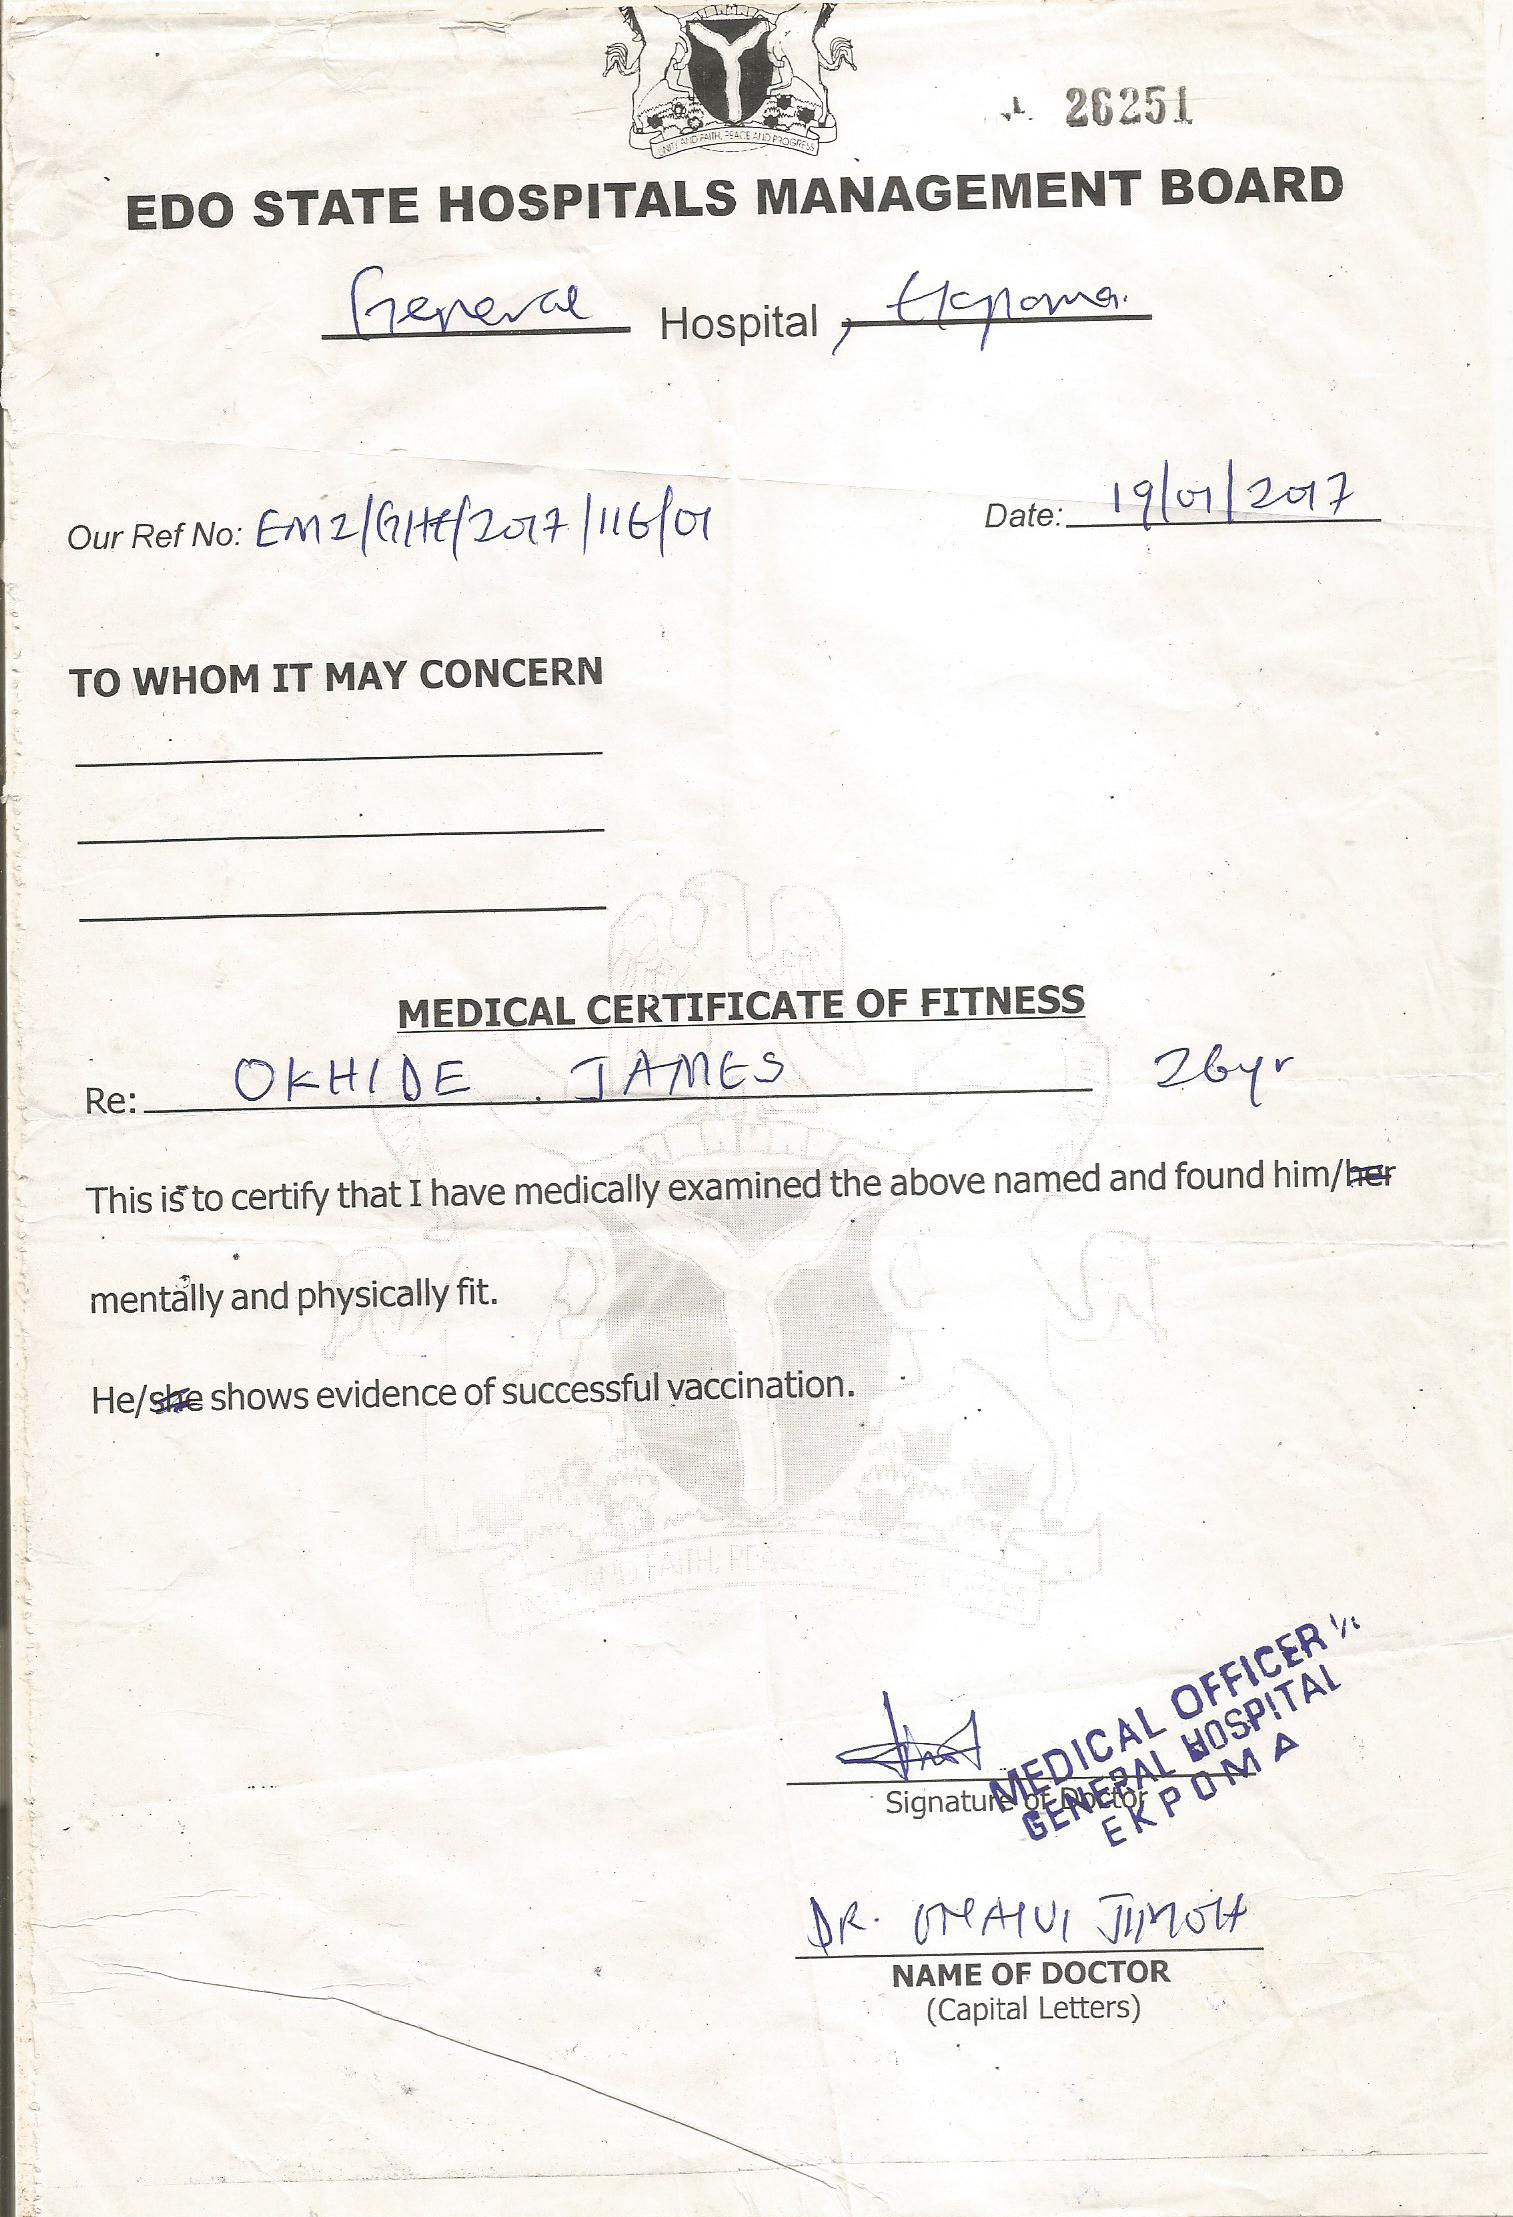 UNITY AND FAITH, PEACE AND PROGRESS
26251
EDO STATE HOSPITALS MANAGEMENT BOARD
General Hospital, Ekpoma.
Our Ref No: EM2/GHE/2017/116/01
Date: 19/01/2017
TO WHOM IT MAY CONCERN
MEDICAL CERTIFICATE OF FITNESS
Re: OKHIDE JAMES 26yr
This is to certify that I have medically examined the above named and found him/her
mentally and physically fit.
He/she shows evidence of successful vaccination.
MEDICAL OFFICER
GENERAL HOSPITAL
EKPOMA
Signature of Doctor
DR. JIMOH
NAME OF DOCTOR
(Capital Letters)